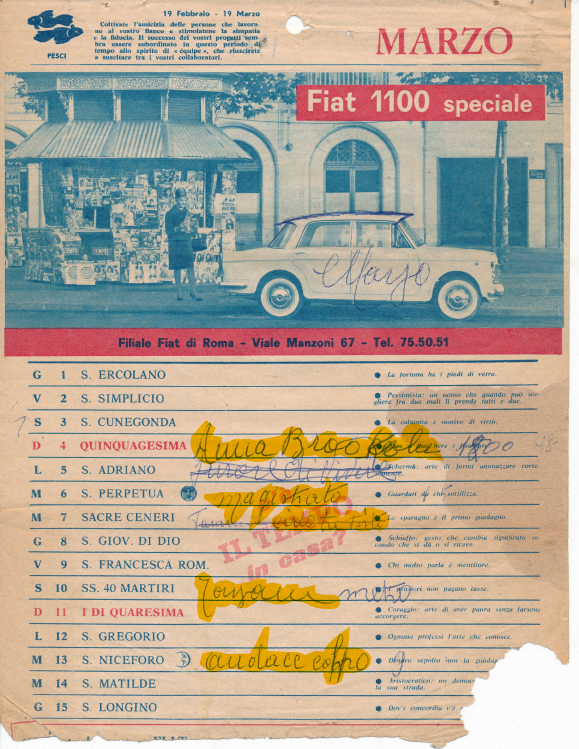 19 Febbraio - 19 Marzo
Coltivate l'amicizia delle persone che lavora-
no al vostro fianco e stimolatene la simpatia
e la fiducia. Il successo dei vostri progetti sem-
bra essere subordinato in questo periodo di
tempo allo spirito di «équipe», che riuscirete
a suscitare tra i vostri collaboratori.
PESCI
MARZO
Fiat 1100 speciale
Marzo
Filiale Fiat di Roma - Viale Manzoni 67 - Tel. 75.50.51
G 1 S. ERCOLANO ● La fortuna ha i piedi di vetro.
V 2 S. SIMPLICIO ● Pessimista: un uomo che quando può sce-
gliere fra due mali li prende tutti e due.
S 3 S. CUNEGONDA ● La calamita è motivo di virtù.
D 4 QUINQUAGESIMA Anna 1800
L 5 S. ADRIANO ● Scherma: arte di farmi ammazzare
M 6 S. PERPETUA magistrato ● Guardati da chi sottilizza.
M 7 SACRE CENERI ● Lo sparagno è il primo guadagno.
IL TEMPO
in casa?
G 8 S. GIOV. DI DIO ● Schiaffo: gesto che cambia significato se-
condo che si dà o si riceve.
V 9 S. FRANCESCA ROM. ● Chi molto parla è mentitore.
S 10 SS. 40 MARTIRI ● I pensieri non pagano tasse.
D 11 I DI QUARESIMA ● Coraggio: arte di aver paura senza farsene
accorgere.
L 12 S. GREGORIO ● Ognuno professi l'arte che conosce.
M 13 S. NICEFORO audace colpo 9 ● Denaro sepolto non fa
M 14 S. MATILDE ● Aristocratico: un
la sua strada.
G 15 S. LONGINO ● Dov'è concordia v'è